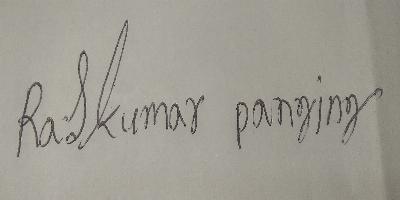 Rajkumar panging